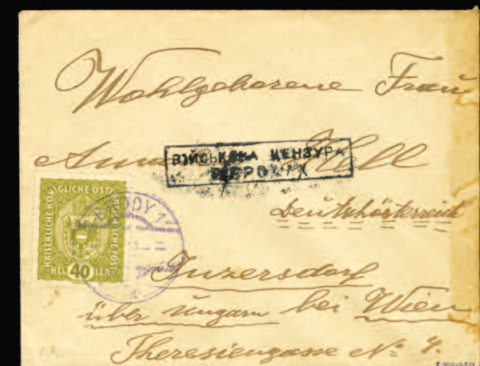 Wohlgeborene Frau
Anna
ВІЙСЬКОВА ЦЕНЗУРА
В БРОДАХ
Deutschösterreich
KAISERLICHE KÖNIGLICHE ÖSTERREICHISCHE POST
HELLER
40
BRODY 1
Inzersdorf
über Ungarn bei Wien
Theresiengasse No 4.